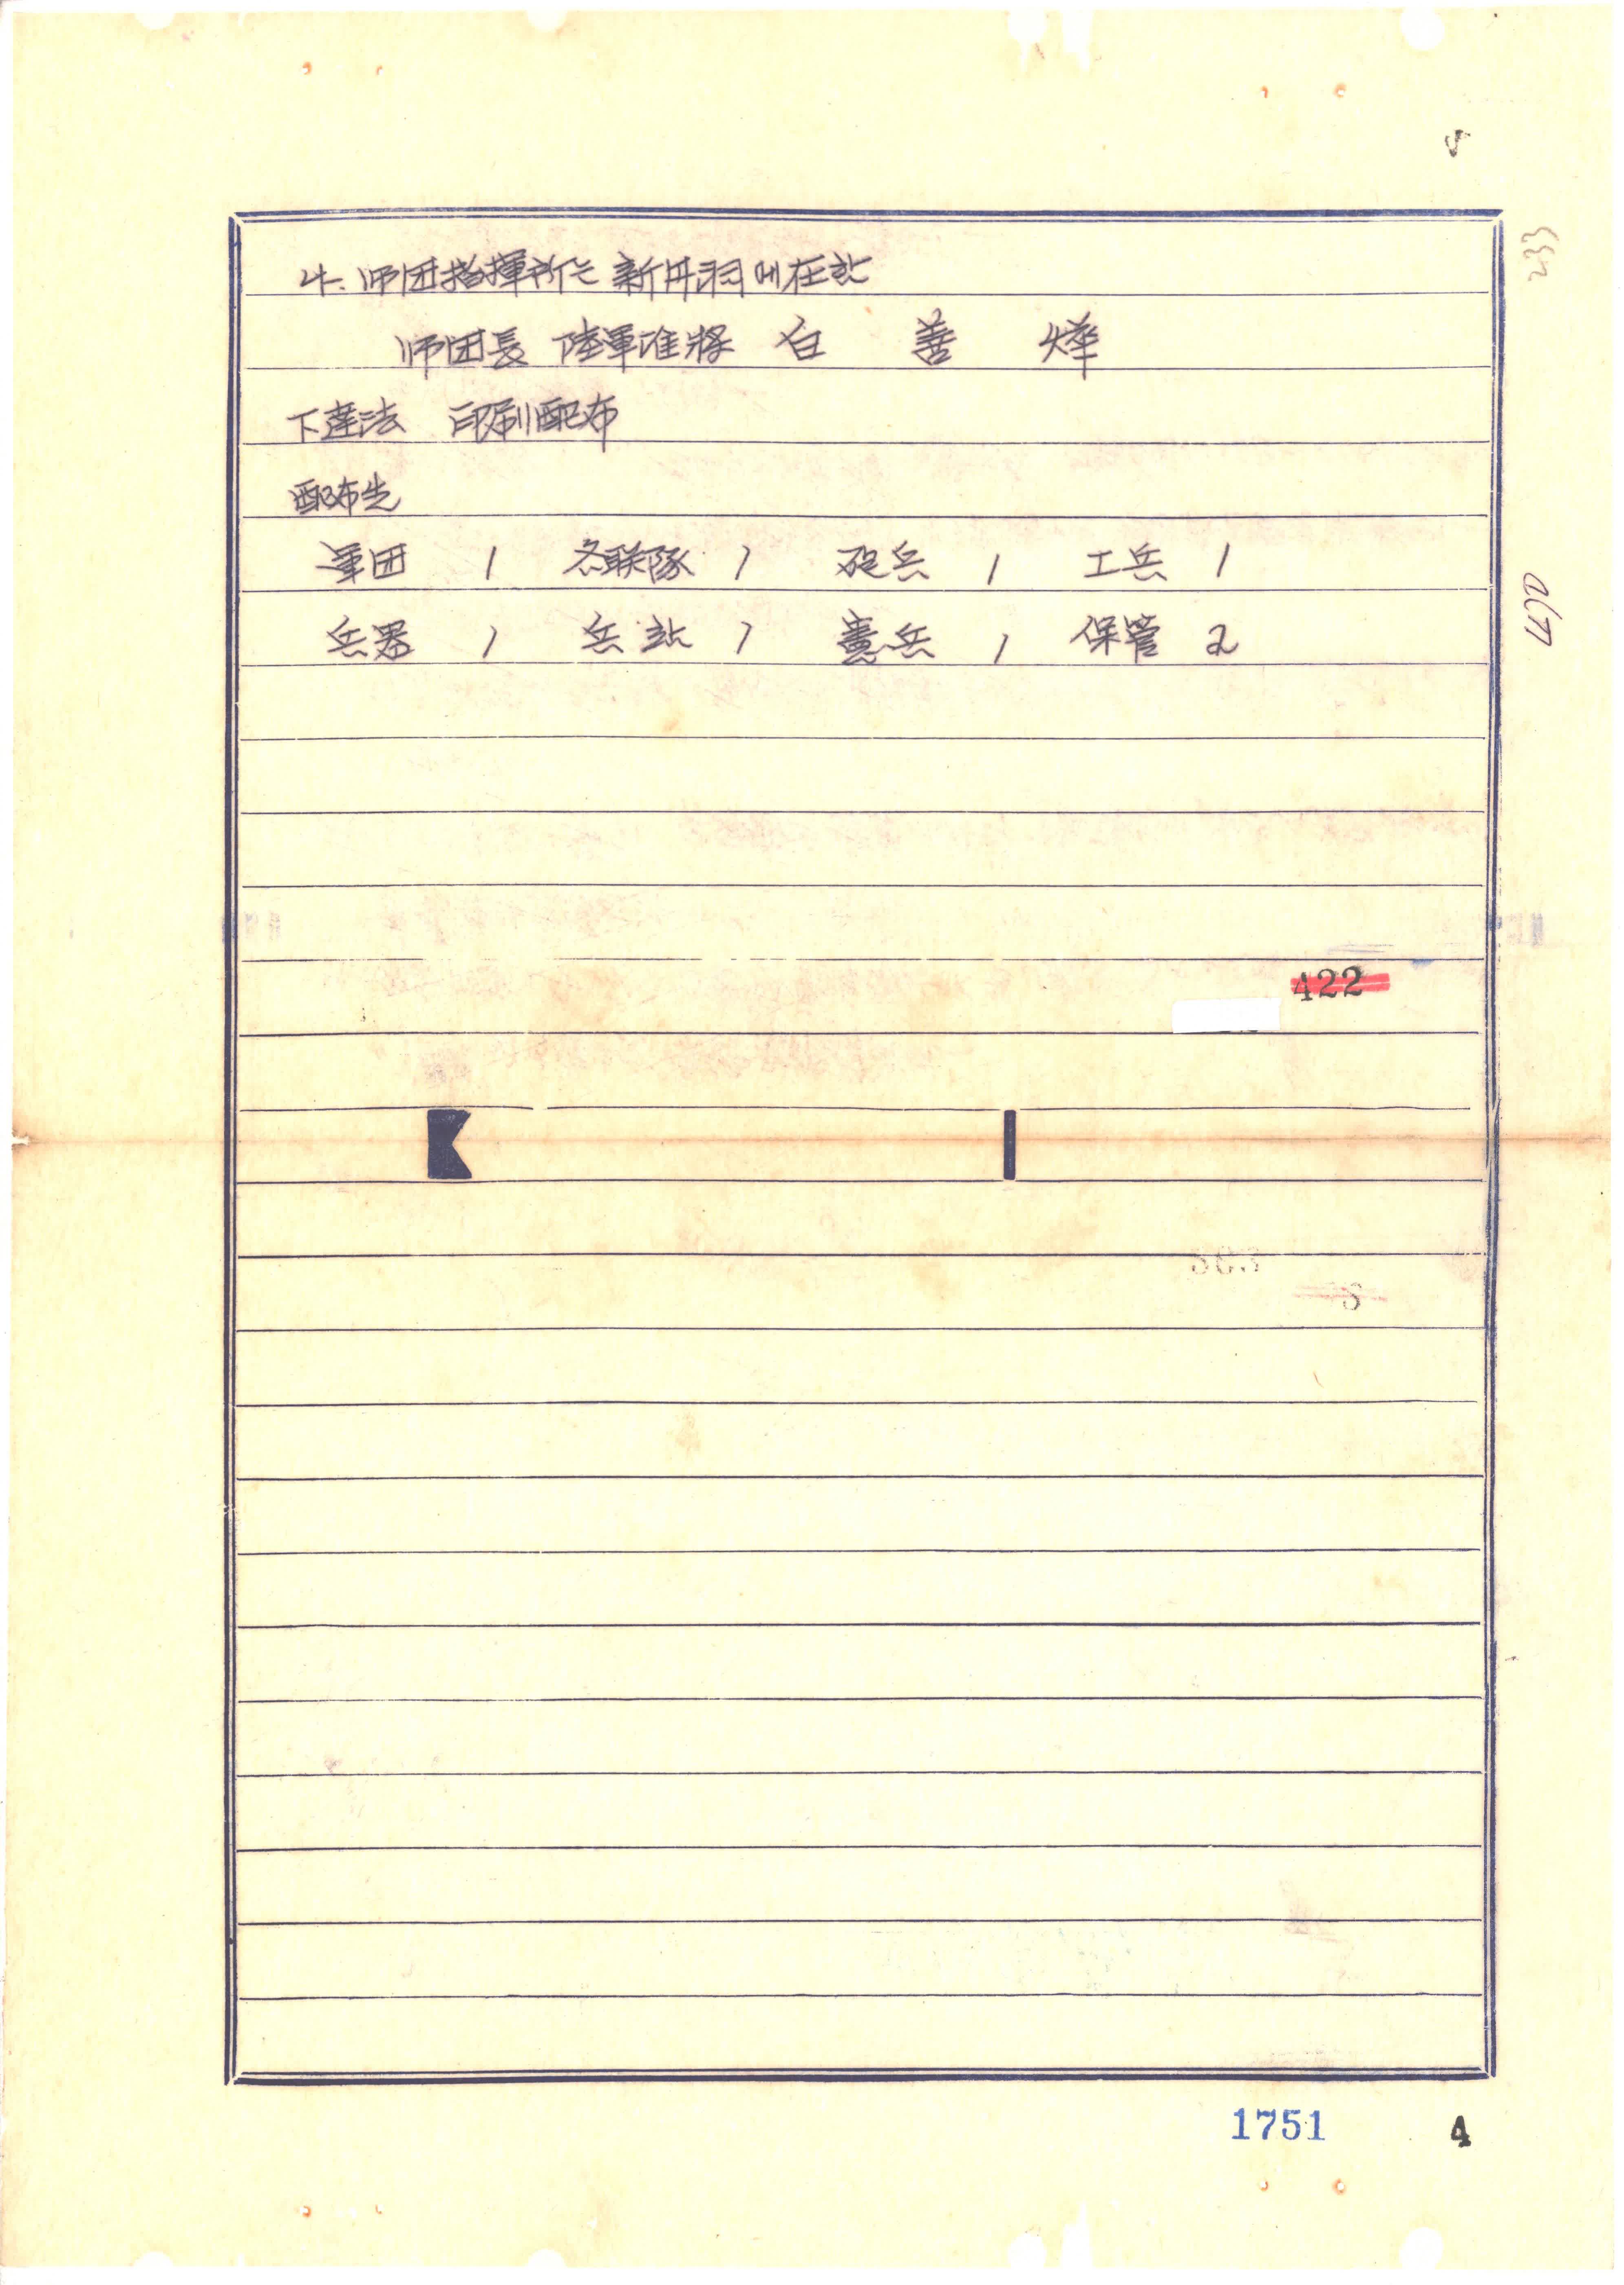 4. 师団指揮所는 新丹羽에 在함
师団長 陸軍准將 白 善 燁
下達法 印刷配布
配布先
軍団 1 各联隊 1 砲兵 1 工兵 1
兵器 1 兵站 1 憲兵 1 保管 2
422
1751 4